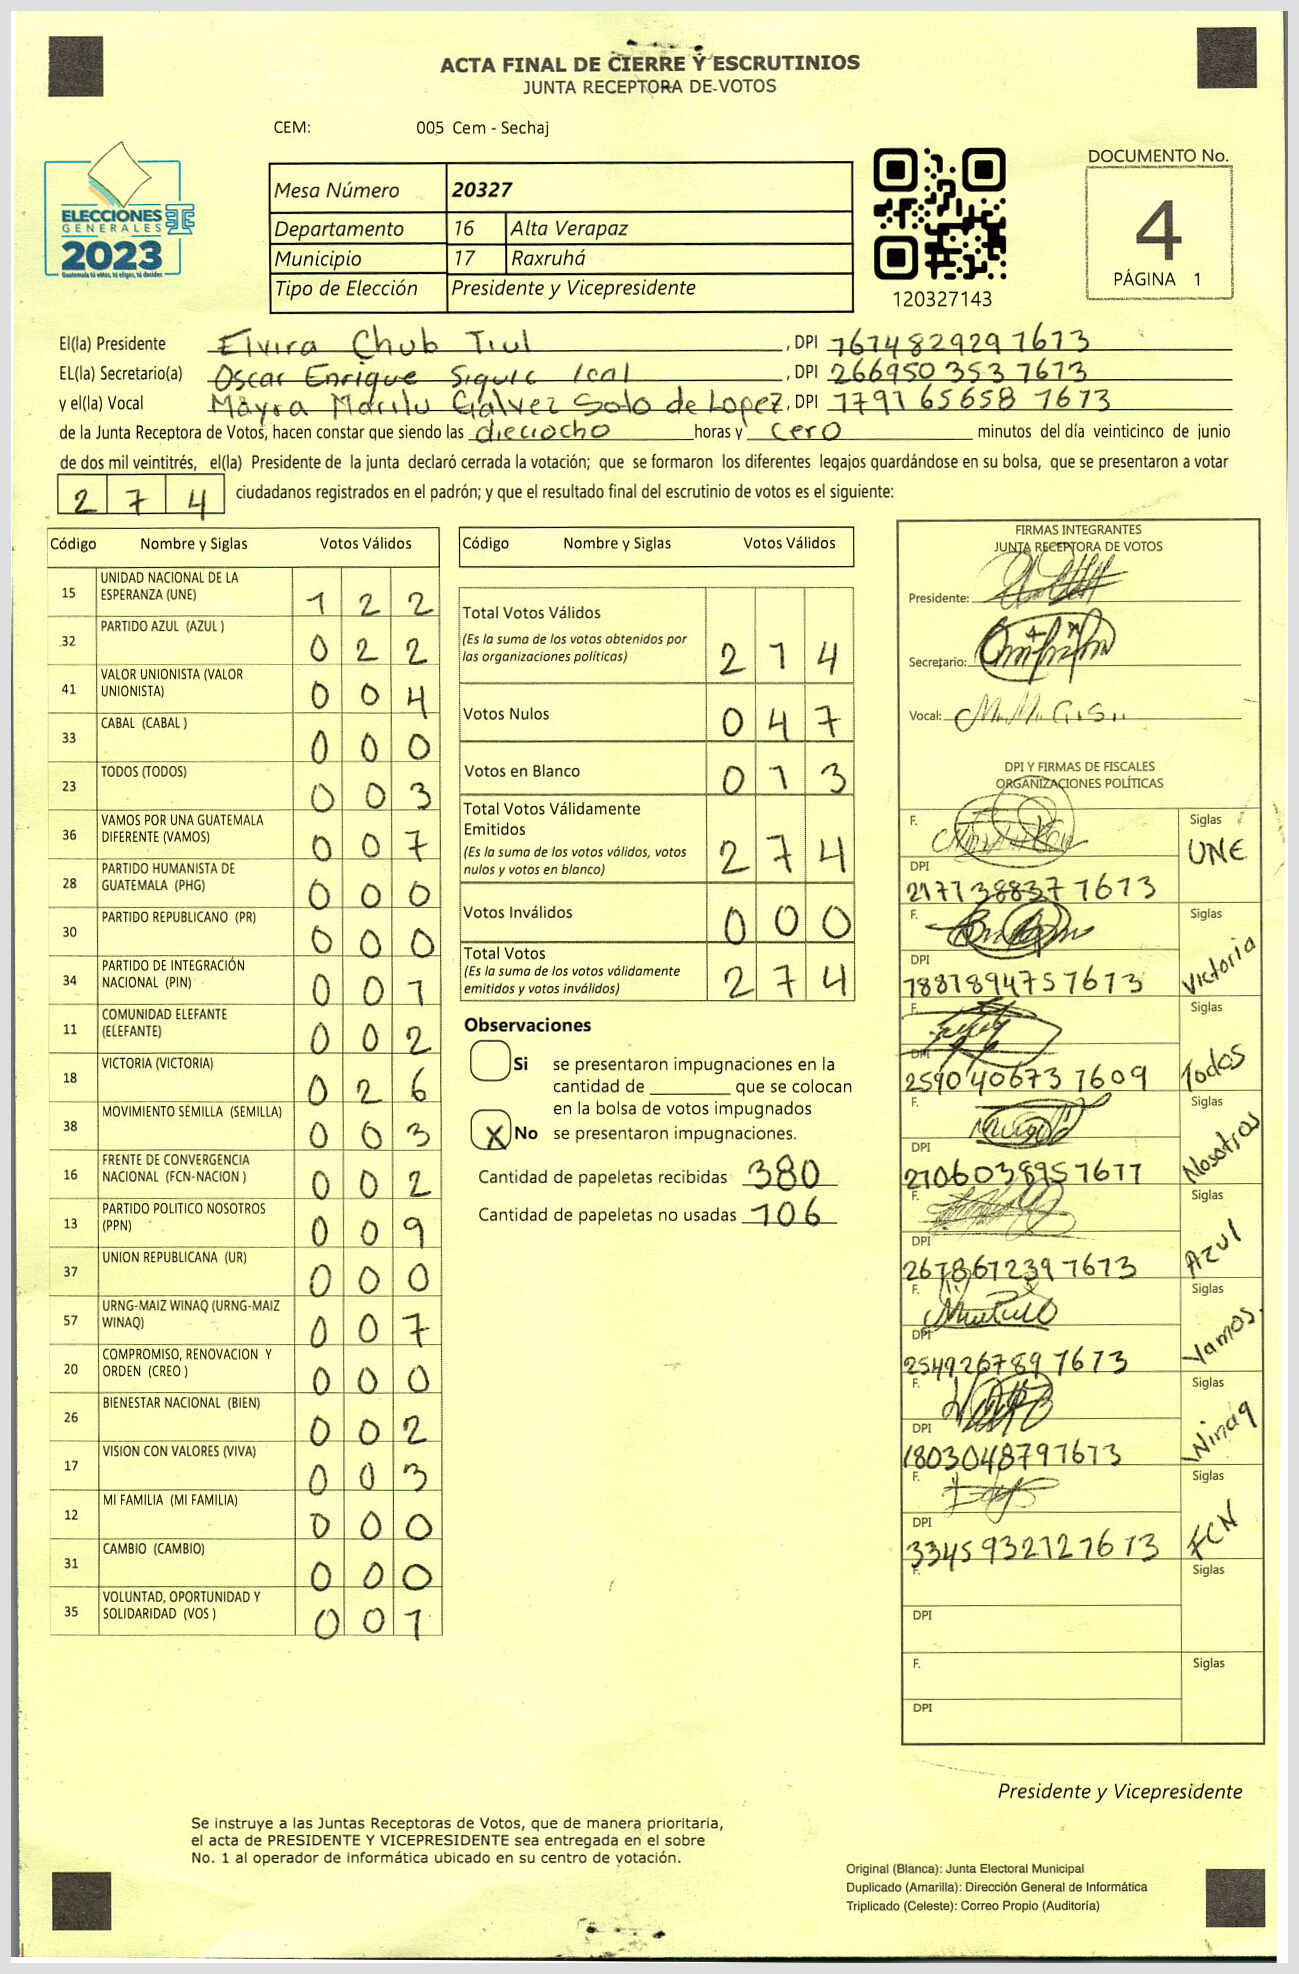 ACTA FINAL DE CIERRE Y ESCRUTINIOS
JUNTA RECEPTORA DE VOTOS
CEM: 005 Cem - Sechaj
ELECCIONES
GENERALES
2023
Guatemala tú votas, tú eliges, tú decides
Mesa Número 20327
Departamento 16 Alta Verapaz
Municipio 17 Raxruhá
Tipo de Elección Presidente y Vicepresidente
120327143
DOCUMENTO No.
4
PÁGINA 1
El(la) Presidente Elvira Chub Tiul, DPI 7674829297673
EL(la) Secretario(a) Oscar Enrique Siquic Ical DPI 2669503537673
y el(la) Vocal Mayra Marilu Gálvez Solo de Lopez, DPI 1791656587673
de la Junta Receptora de Votos, hacen constar que siendo las dieciocho horas y cero minutos del día veinticinco de junio
de dos mil veintitrés, el(la) Presidente de la junta declaró cerrada la votación; que se formaron los diferentes legajos guardándose en su bolsa, que se presentaron a votar
274 ciudadanos registrados en el padrón; y que el resultado final del escrutinio de votos es el siguiente:
Código Nombre y Siglas Votos Válidos
15 UNIDAD NACIONAL DE LA ESPERANZA (UNE) 1 2 2
32 PARTIDO AZUL (AZUL ) 0 2 2
41 VALOR UNIONISTA (VALOR UNIONISTA) 0 0 4
33 CABAL (CABAL ) 0 0 0
23 TODOS (TODOS) 0 0 3
36 VAMOS POR UNA GUATEMALA DIFERENTE (VAMOS) 0 0 7
28 PARTIDO HUMANISTA DE GUATEMALA (PHG) 0 0 0
30 PARTIDO REPUBLICANO (PR) 0 0 0
34 PARTIDO DE INTEGRACIÓN NACIONAL (PIN) 0 0 1
11 COMUNIDAD ELEFANTE (ELEFANTE) 0 0 2
18 VICTORIA (VICTORIA) 0 2 6
38 MOVIMIENTO SEMILLA (SEMILLA) 0 0 3
16 FRENTE DE CONVERGENCIA NACIONAL (FCN-NACION ) 0 0 2
13 PARTIDO POLITICO NOSOTROS (PPN) 0 0 9
37 UNION REPUBLICANA (UR) 0 0 0
57 URNG-MAIZ WINAQ (URNG-MAIZ WINAQ) 0 0 7
20 COMPROMISO, RENOVACION Y ORDEN (CREO ) 0 0 0
26 BIENESTAR NACIONAL (BIEN) 0 0 2
17 VISION CON VALORES (VIVA) 0 0 3
12 MI FAMILIA (MI FAMILIA) 0 0 0
31 CAMBIO (CAMBIO) 0 0 0
35 VOLUNTAD, OPORTUNIDAD Y SOLIDARIDAD (VOS ) 0 0 1
Código Nombre y Siglas Votos Válidos
Total Votos Válidos 2 1 4
(Es la suma de los votos obtenidos por
las organizaciones políticas)
Votos Nulos 0 4 7
Votos en Blanco 0 1 3
Total Votos Válidamente
Emitidos 2 7 4
(Es la suma de los votos válidos, votos
nulos y votos en blanco)
Votos Inválidos 0 0 0
Total Votos 2 7 4
(Es la suma de los votos válidamente
emitidos y votos inválidos)
Observaciones
Si se presentaron impugnaciones en la
cantidad de ________ que se colocan
en la bolsa de votos impugnados
X No se presentaron impugnaciones.
Cantidad de papeletas recibidas 380
Cantidad de papeletas no usadas 106
FIRMAS INTEGRANTES
JUNTA RECEPTORA DE VOTOS
Presidente:
Secretario:
Vocal:
DPI Y FIRMAS DE FISCALES
ORGANIZACIONES POLÍTICAS
F. Siglas UNE
DPI 2177388377673
F. Siglas Victoria
DPI 7881894757673
F. Siglas Todos
DPI 2590406737609
F. Siglas Nosotros
DPI 2706038957677
F. Siglas Azul
DPI 2678672397673
F. Siglas Vamos.
DPI 2549267897673
F. Siglas Winaq
DPI 1803048797673
F. Siglas FCN
DPI 3345932127673
F. Siglas
DPI
F. Siglas
DPI
Presidente y Vicepresidente
Se instruye a las Juntas Receptoras de Votos, que de manera prioritaria,
el acta de PRESIDENTE Y VICEPRESIDENTE sea entregada en el sobre
No. 1 al operador de informática ubicado en su centro de votación.
Original (Blanca): Junta Electoral Municipal
Duplicado (Amarilla): Dirección General de Informática
Triplicado (Celeste): Correo Propio (Auditoría)